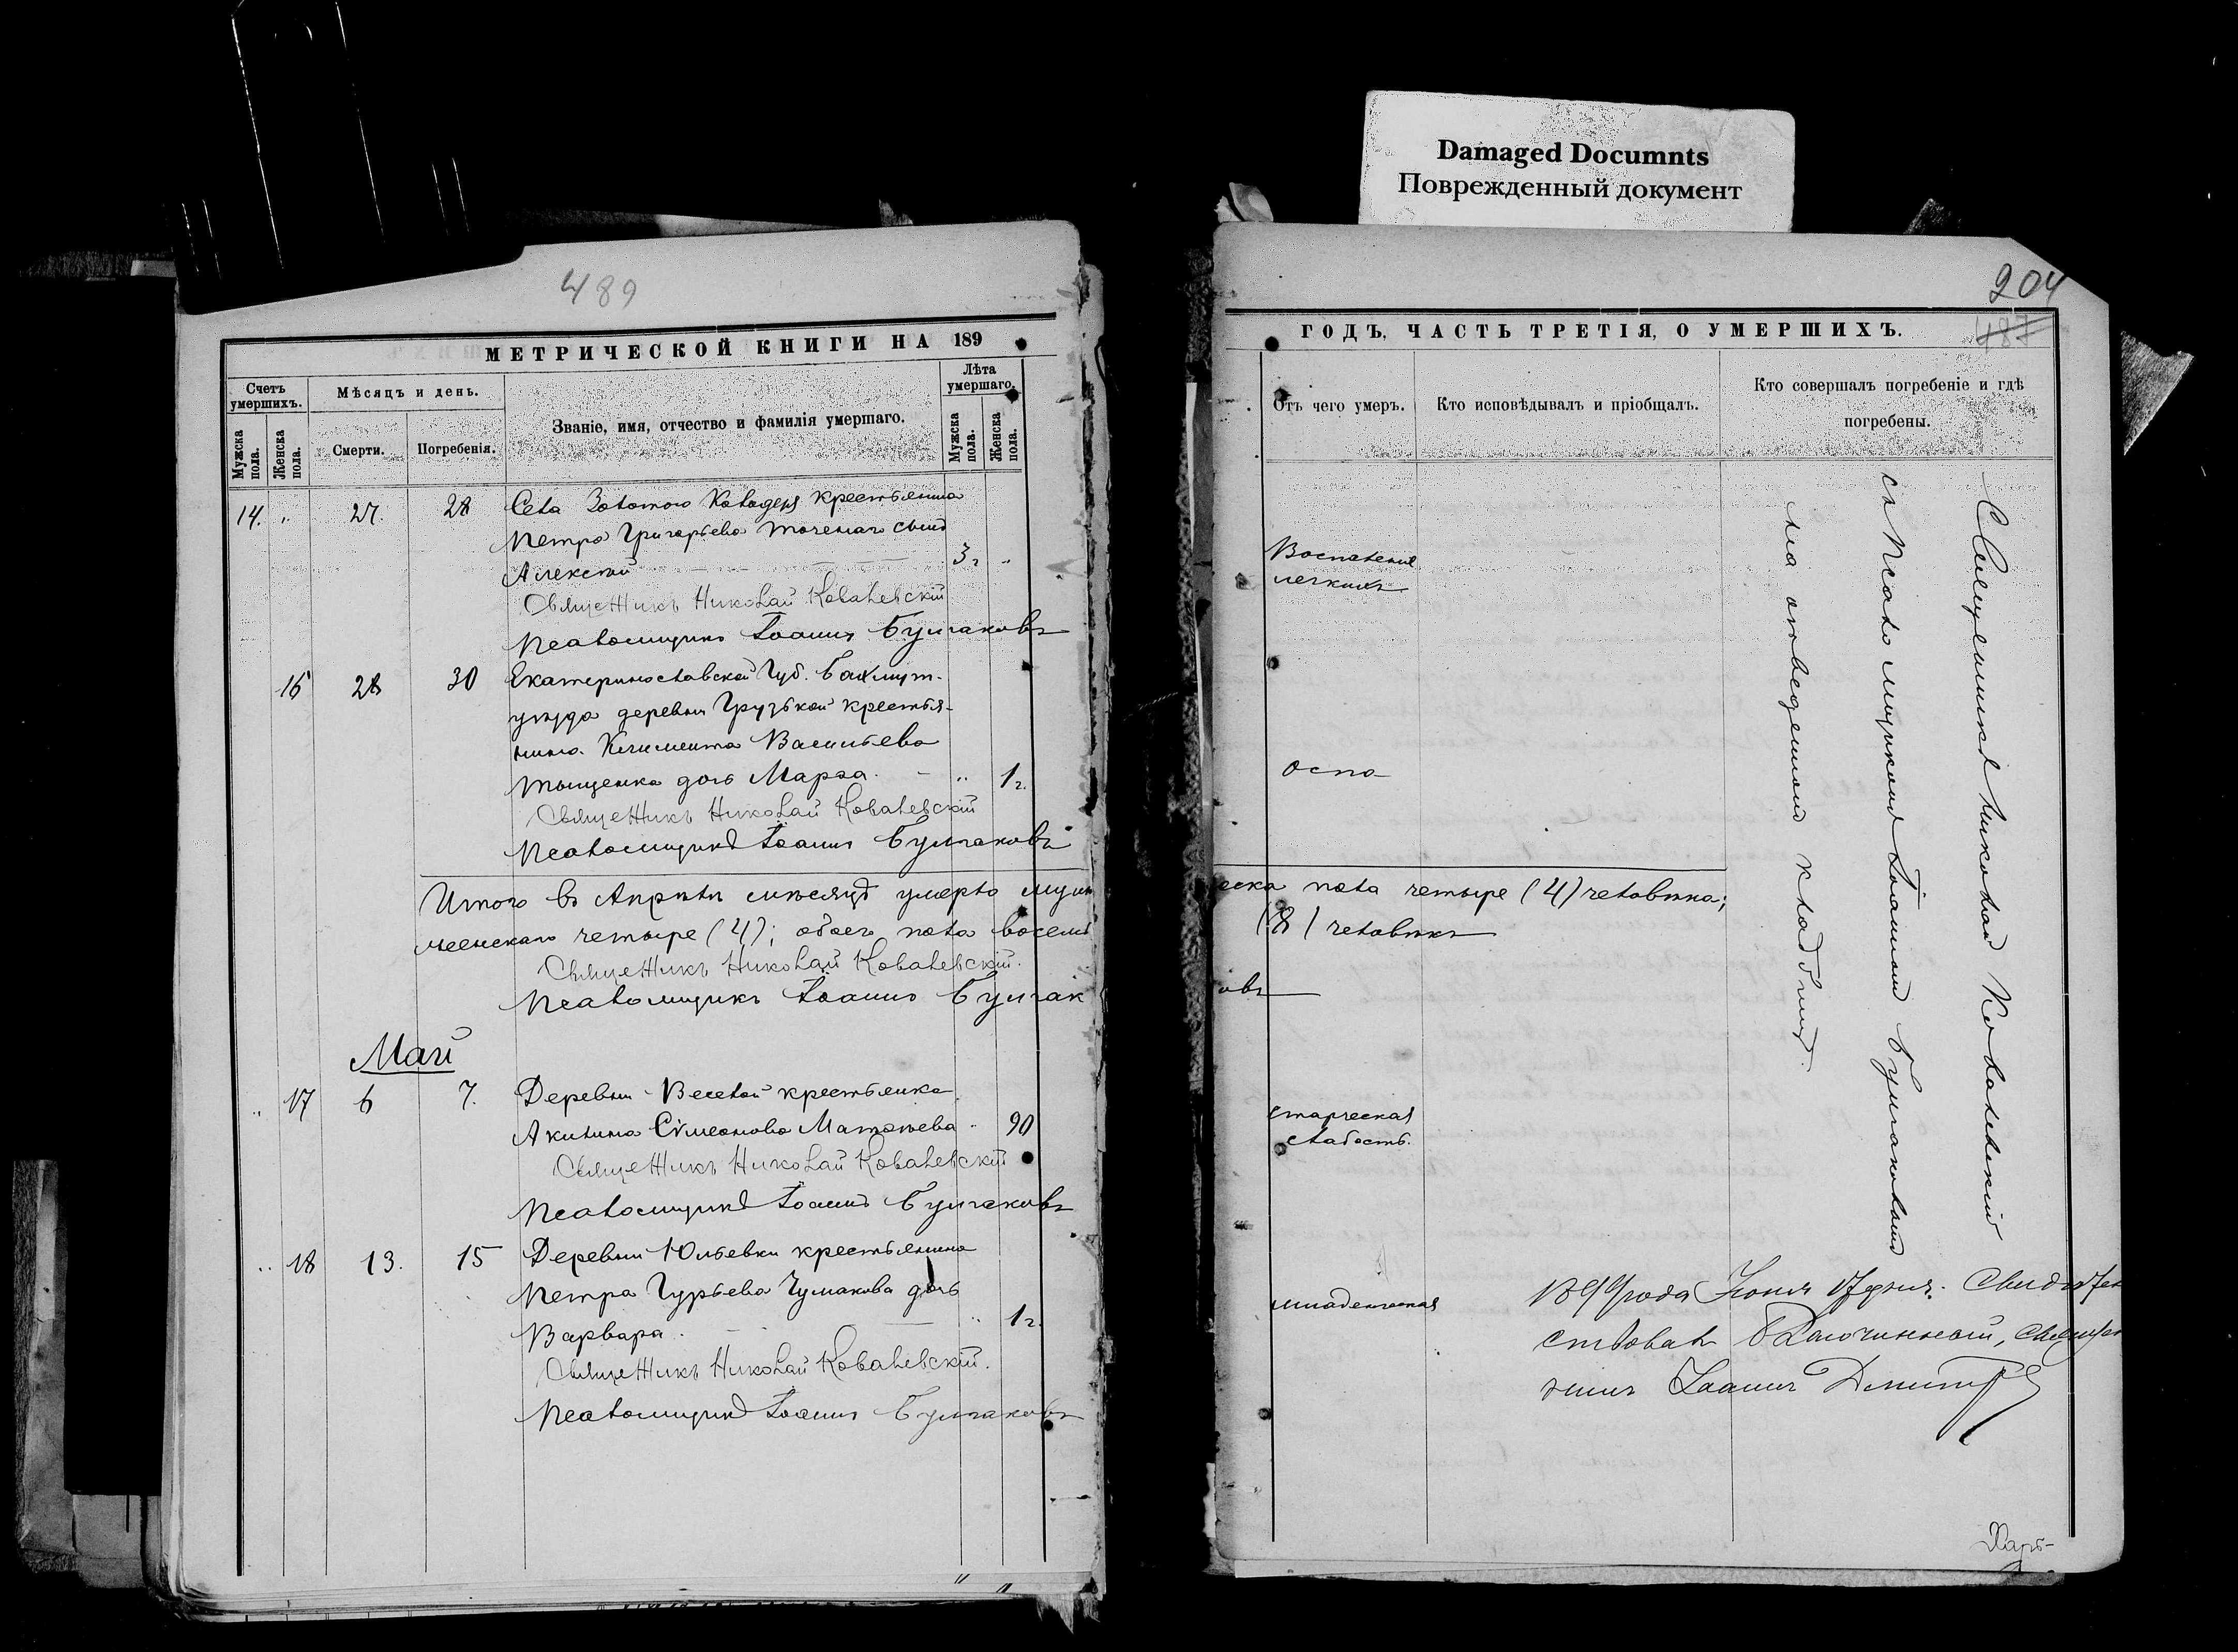 Damaged Documnts
Поврежденный документ
489
МЕТРИЧЕСКОЙ КНИГИ НА 189
Счетъ умершихъ.
Мужска пола.
Женска пола.
Мѣсяцъ и день.
Смерти.
Погребенія.
Званіе, имя, отчество и фамилія умершаго.
Лѣта умершаго.
Мужска пола.
Женска пола.
14. " 27. 28 Села Золотого Колодезя крестьянина
Петра Григорьева сына
Алексѣй 3 г "
Священникъ Николай Ковалевскій
Псаломщикъ Іоаннъ Булгаковъ
16 28 30 Екатеринославской Губ. Бахмут-
уѣзда деревни Грузькой крестья-
нина Климента Васильева
дочь Марѳа - " 1 г.
Священникъ Николай Ковалевскій
Псаломщикъ Іоаннъ Булгаковъ
Итого въ Апрѣлѣ мѣсяцѣ умерло муж
женскаго четыре (4); обоего пола восемь
Священникъ Николай Ковалевскій.
Псаломщикъ Іоаннъ Булгак
Май
" 17 6 7. Деревни Веселой крестьянка
Акилина Сѵмеонова Матвѣева " 90
Священникъ Николай Ковалевскій
Псаломщикъ Іоаннъ Булгаковъ
" 18 13. 15 Деревни Юльевки крестьянина
Петра Гурьева Чумакова дочь
Варвара " 1 г.
Священникъ Николай Ковалевскій.
Псаломщикъ Іоаннъ Булгаковъ
204
487
ГОДЪ, ЧАСТЬ ТРЕТІЯ, О УМЕРШИХЪ.
Отъ чего умеръ.
Кто исповѣдывалъ и пріобщалъ.
Кто совершалъ погребеніе и гдѣ погребены.
Воспаленія
легкихъ
оспа
еска пола четыре (4) человѣка;
(8) человѣкъ
овъ
старческая
слабость.
младенческая
Священникъ Николай Ковалевскій
съ Псаломщикомъ Іоанномъ Булгаковымъ
на отведенномъ кладбищѣ.
1899 года Іюня 17 дня. Свидѣтел
ствовалъ Благочинный, Священ
никъ Іоаннъ
Харь-